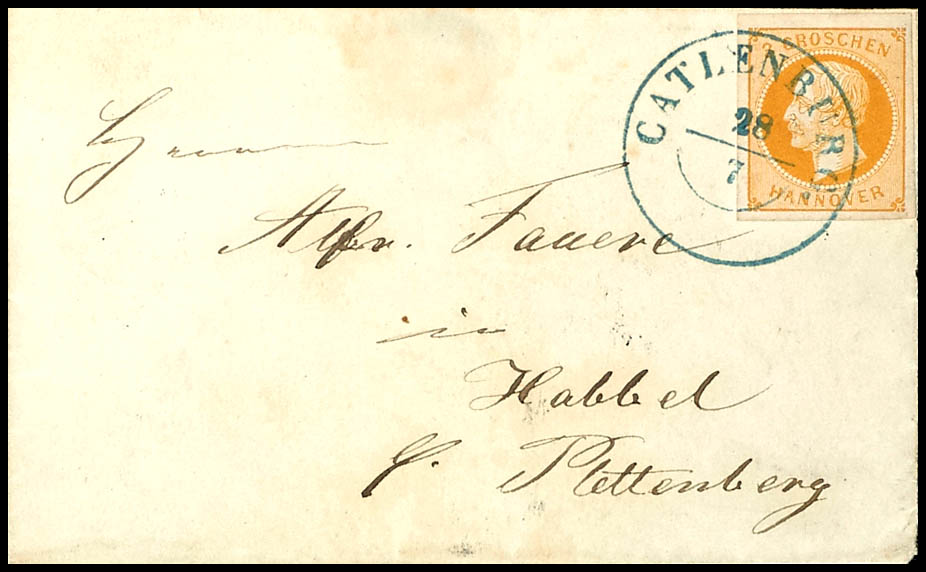 3 GROSCHEN
CATLENBURG
28
7
HANNOVER
Herrn
Alfr. Fauere
in
Habbel
b. Plettenberg